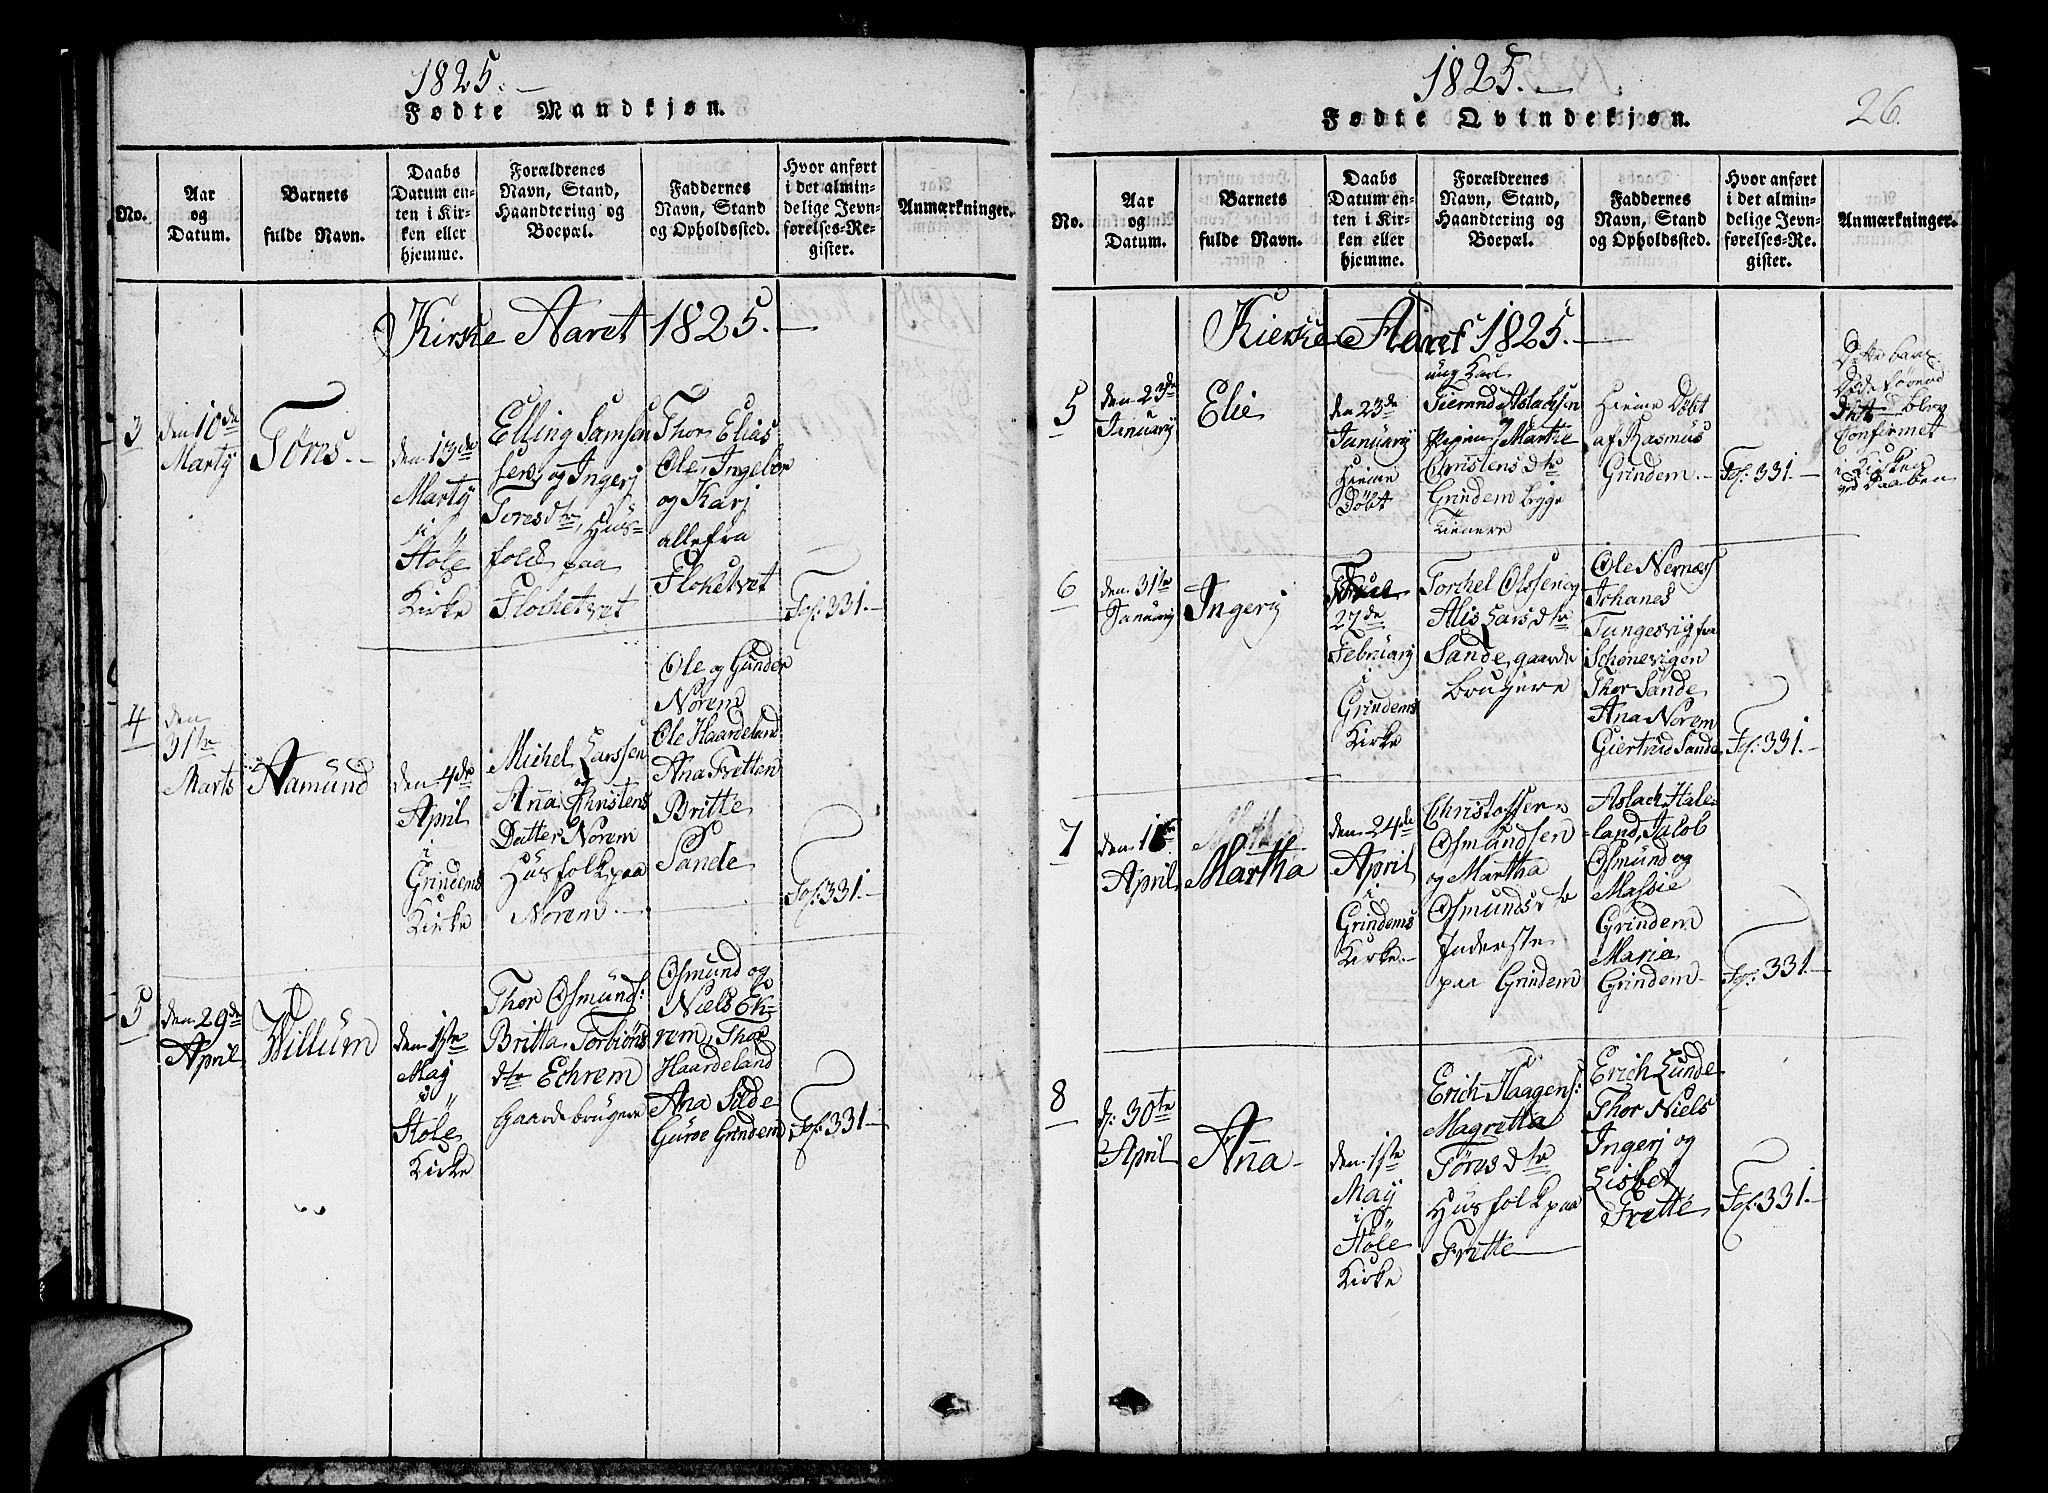 1825.
Fødte Mandkjøn.
No.
Aar
og
Datum.
Barnets
fulde Navn.
Daabs
Datum en-
ten i Kir-
ken eller
hjemme.
Forældrenes
Navn, Stand,
Haandtering og
Boepæl.
Faddernes
Navn, Stand
og Opholdssted.
Hvor anført
i det almin-
delige Jevn-
førelses-Re-
gister.
Anmærkninger.
Kirke Aaret 1825.
3
den 10de
Martÿ
Töres.
den 13de
Martÿ
i
Stöle
Kirke
Elling Samsen
sen, og Ingerj
Toresdtr, Hus-
folk paa
Flocketvet
Thor, Elias
Ole, Ingebor
og Karj
alle fra
Floketvet
Fol. 331.
4
den
31te
Marts
Aamund
den 4de
April
i
Grindems
Kirke
Michel Larssen
og
Anna Christens
Datter Norem
Husfolk paa
Norem.
Ole og Gunder
Norem
Ole Haardeland
Ana Fretten
Britte
Sande
Fol. 331.
5
den 29de
April
Willum
den 1ste
Maj
i
Stöle
Kirke
Thor Osmunds:
Britta Torbiörns
dtr Echrem
Gaardebrugere
Osmund og
Niels Ek-
rem, Thor
Haardeland
Ana Silde
Guroe Grindem
Fol. 331.
1825.
Fødte Qvindekjøn.
26.
No.
Aar
og
Datum.
Barnets
fulde Navn.
Daabs
Datum en-
ten i Kir-
ken eller
hjemme.
Forældrenes
Navn, Stand,
Haandtering og
Boepæl.
Faddernes
Navn, Stand
og Opholdssted.
Hvor anført
i det almin-
delige Jevn-
førelses-Re-
gister.
Anmærkninger.
Kirke Aaret 1825.
5
den 23de
Januarÿ
Elie
den 23de
Januarÿ
Hieme
Döbt
ung Karl
Tierand Aslachsen
Pigen Marthe
Christensdtr
Grindem begge
tienere
Hieme Döbt
af Rasmus
Grindem.
Fol. 331.
Dette barn
Döde förend
Dett blev
Confirmet
i Kirken
ved Daaben
6
den 31te
Januarÿ
Ingerj
27de
Februarÿ
i
Grindems
Kirke
Torchel Olssen og
Alis Larsdtr
Sande, gaarde
brugere
Ole Nernæs
Johanes
Tungesvig fra
Schonevigen
Thor Sande
Ana Norem
Giertrud Sande
Fol. 331.
7
den
April
Martha
den 24de
April
i
Grindems
Kirke.
Christoffer
Osmundsen
og Martha
Osmundsdtr
Inderste
paa Grindem
Aslach Hale-
land, Jacob
Osmund og
Massie
Grindem
Maria
Grindem
Fol. 331.
8
d: 30te
April
Ana
den 1ste
Maÿ
i
Stöle
Kirke
Erich Haagens:
Magritta
Töresdtr
Husfolk paa
Fritte
Erich Lunde
Thor Niels
Ingerj og
Lisbet
Frette
Fol. 331.